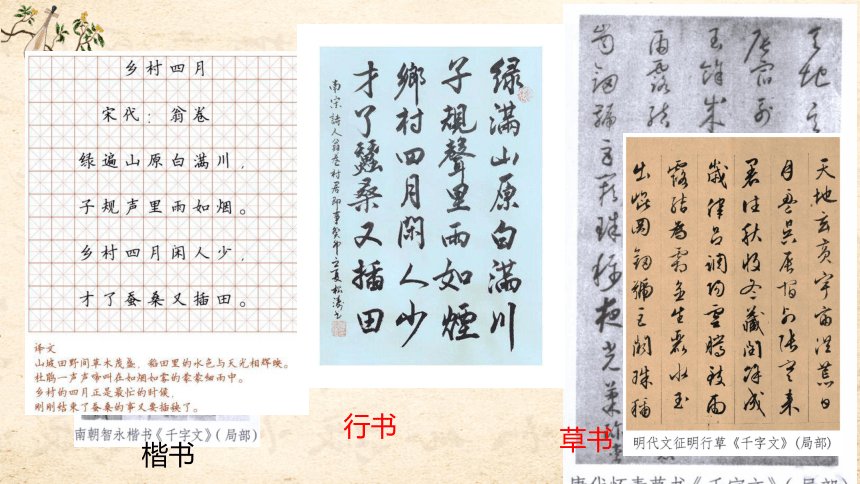 乡村四月
宋代：翁卷
绿遍山原白满川，
子规声里雨如烟。
乡村四月闲人少，
才了蚕桑又插田。
译文
山坡田野间草木茂盛，稻田里的水色与天光相辉映。
杜鹃一声声啼叫在如烟如雾的蒙蒙细雨中。
乡村的四月正是最忙的时候，
刚刚结束了蚕桑的事又要插秧了。
南朝智永楷书《千字文》(局部)
楷书
绿满山原白满川
子規聲里雨如煙
鄉村四月閑人少
才了蠶桑又插田
南宋詩人翁卷村居即事癸卯立夏松濤书
行书
天地玄黄宇宙洪荒日
月盈昃辰宿列张寒来
暑往秋收冬藏闰馀成
歲律吕调阳雲騰致雨
露结为霜金生麗水玉
出崑冈剑号巨阙珠称
明代文征明行草《千字文》(局部)
草书
唐代怀素草书《千字文》(局部)